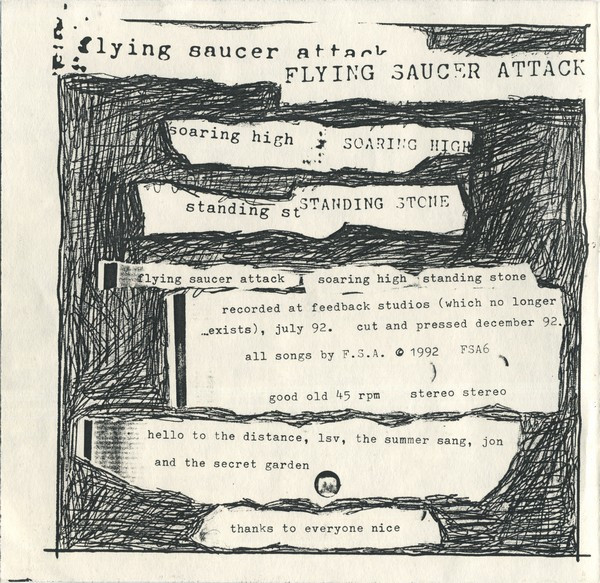 flying saucer attack
FLYING SAUCER ATTACK
soaring high SOARING HIGH
standing st STANDING STONE
flying saucer attack soaring high standing stone
recorded at feedback studios (which no longer
…exists), july 92. cut and pressed december 92.
all songs by F.S.A. © 1992 FSA6
good old 45 rpm stereo stereo
hello to the distance, lsv, the summer sang, jon
and the secret garden
thanks to everyone nice